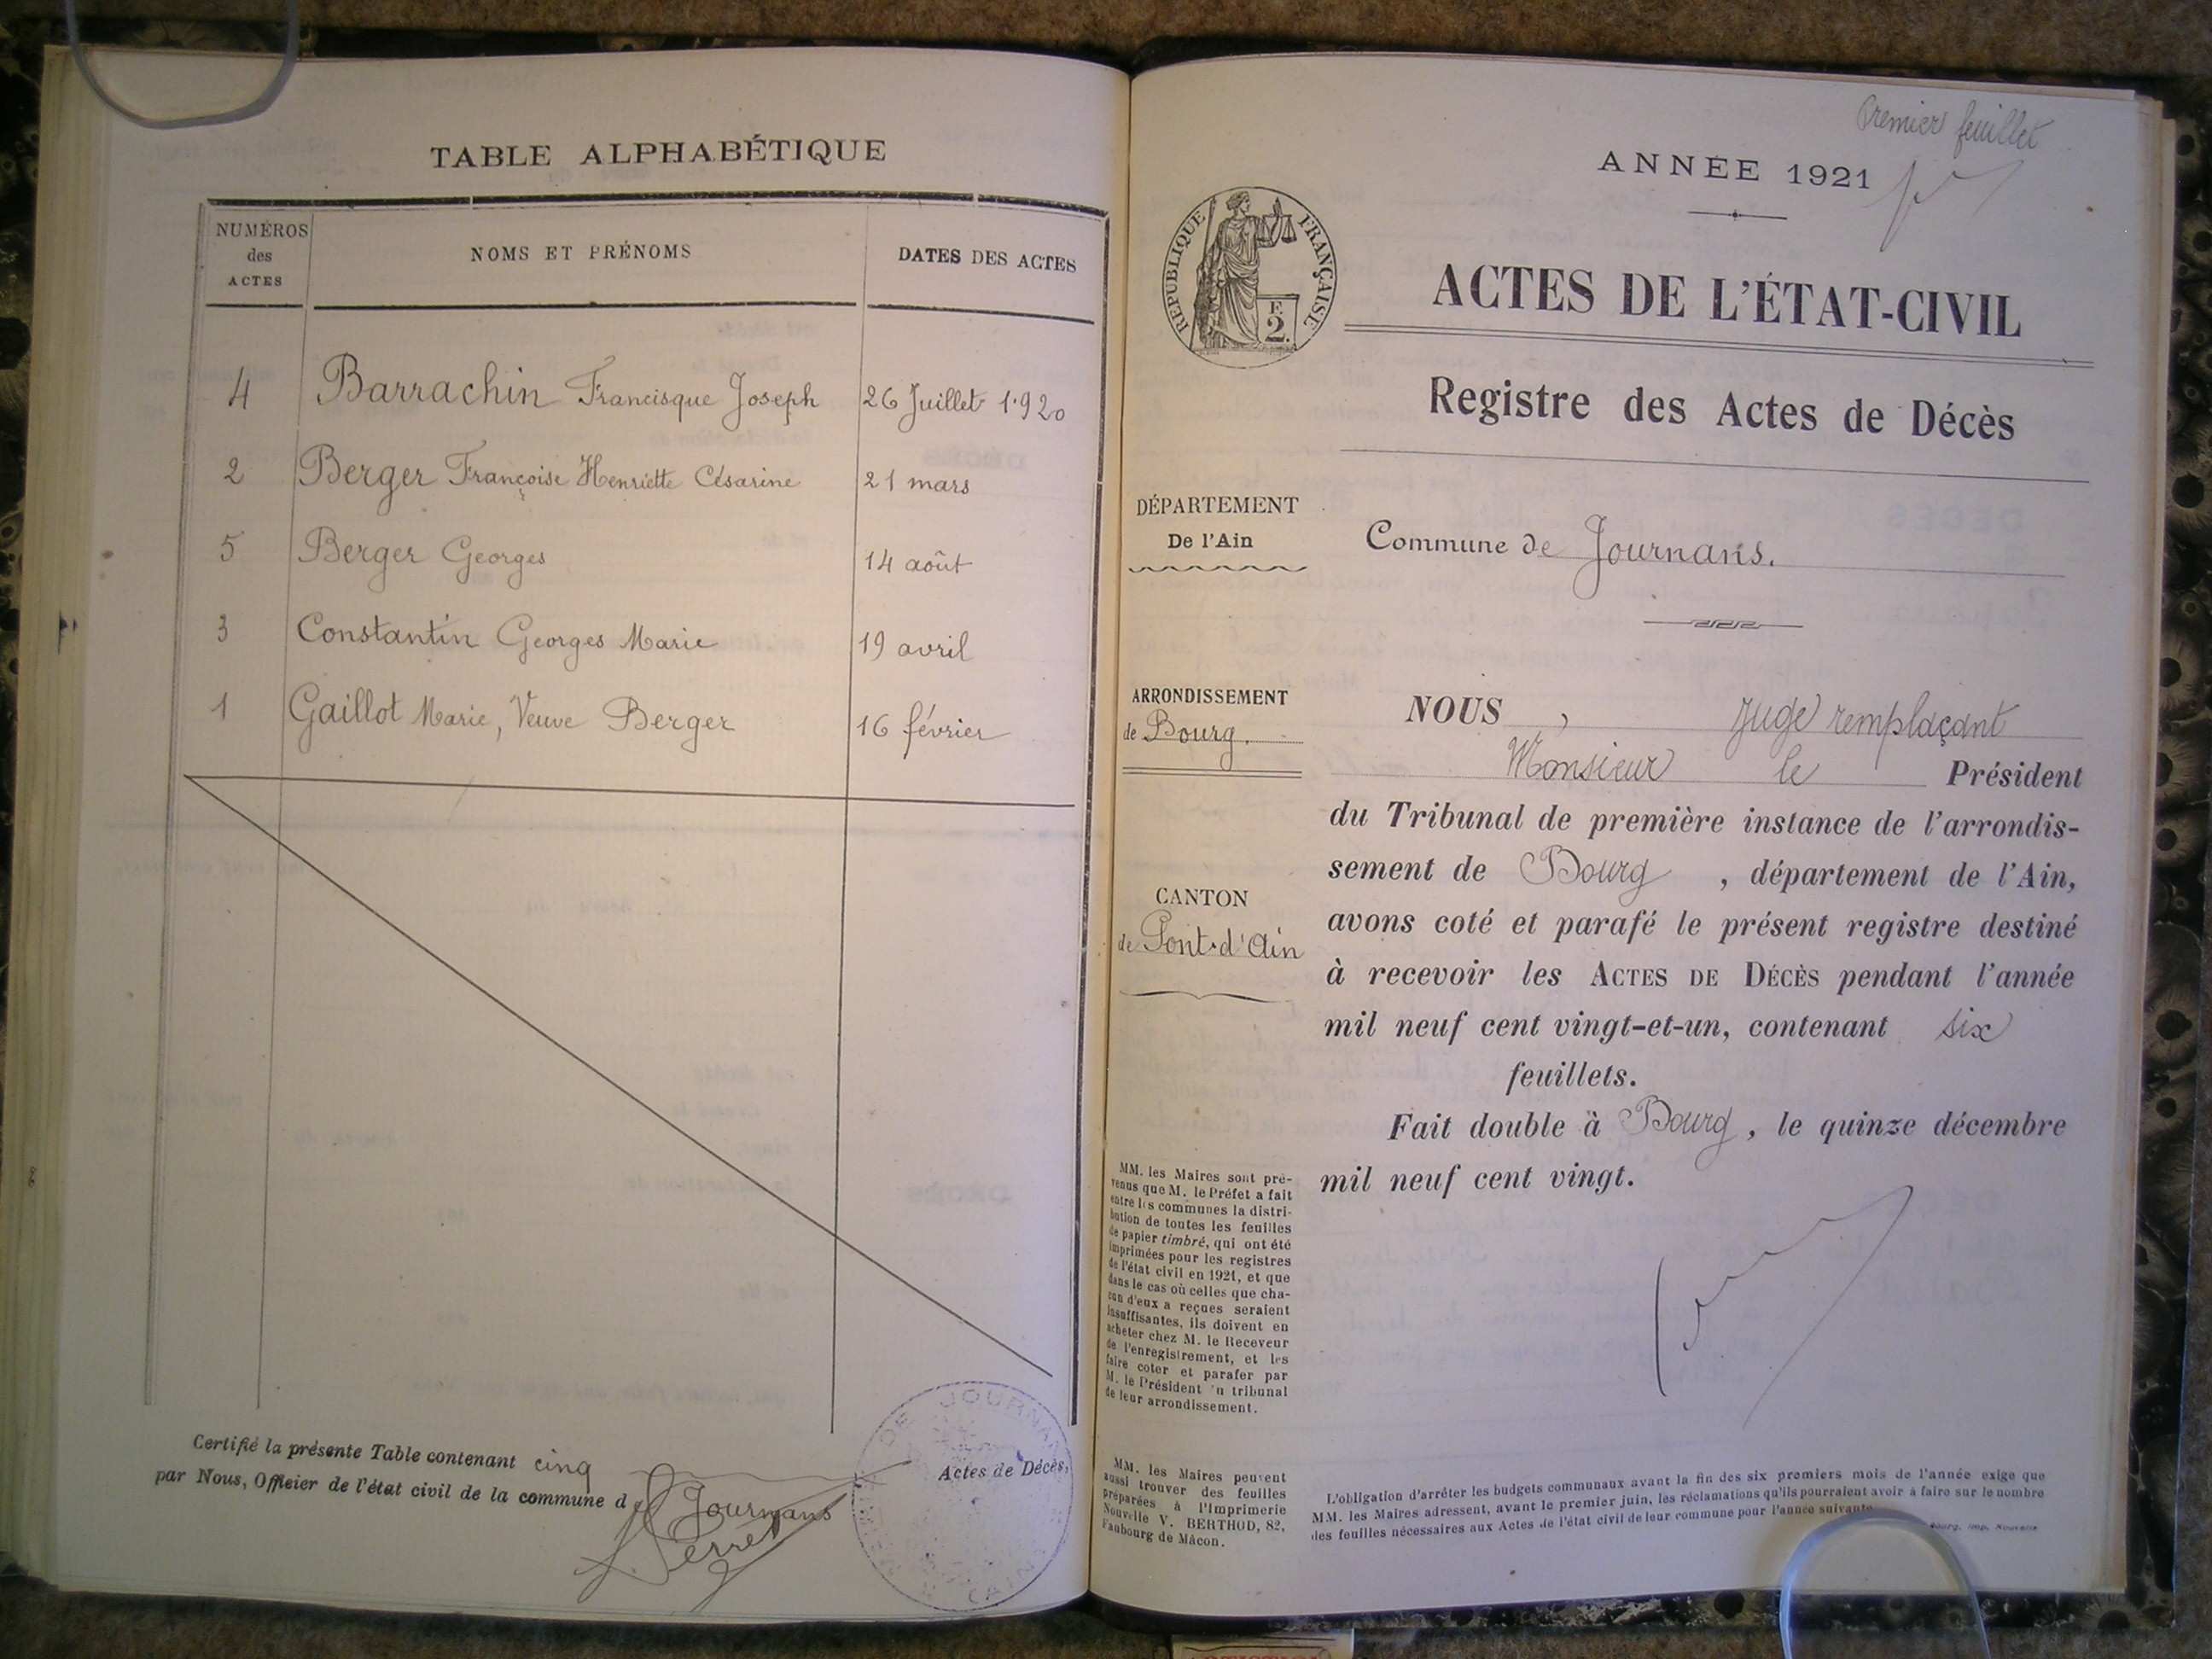 TABLE ALPHABÉTIQUE
NUMÉROS
des
ACTES
NOMS ET PRÉNOMS
DATES DES ACTES
4 Barrachin Francisque Joseph 26 Juillet 1920
2 Berger Françoise Henriette Césarine 21 mars
5 Berger Georges 14 août
3 Constantin Georges Marie 19 avril
1 Gaillot Marie, Veuve Berger 16 février
Certifié la présente Table contenant cinq Actes de Décès,
par Nous, Officier de l'état civil de la commune de Journans
Perret
DE JOURNANS
Premier feuillet
ANNÉE 1921
RÉPUBLIQUE FRANÇAISE
F.
2.
ACTES DE L'ÉTAT-CIVIL
Registre des Actes de Décès
DÉPARTEMENT
De l'Ain
Commune de Journans.
ARRONDISSEMENT
de Bourg.
CANTON
de Pont-d'Ain
NOUS, Juge remplaçant
Monsieur le Président
du Tribunal de première instance de l'arrondis-
sement de Bourg, département de l'Ain,
avons coté et parafé le présent registre destiné
à recevoir les ACTES DE DÉCÈS pendant l'année
mil neuf cent vingt-et-un, contenant six
feuillets.
Fait double à Bourg, le quinze décembre
mil neuf cent vingt.
MM. les Maires sont pré-
venus que M. le Préfet a fait
entre les communes la distri-
bution de toutes les feuilles
de papier timbré, qui ont été
imprimées pour les registres
de l'état civil en 1921, et que
dans le cas où celles que cha-
cun d'eux a reçues seraient
insuffisantes, ils doivent en
acheter chez M. le Receveur
de l'enregistrement, et les
faire coter et parafer par
M. le Président du tribunal
de leur arrondissement.
MM. les Maires peuvent
aussi trouver des feuilles
préparées à l'Imprimerie
Nouvelle V. BERTHOD, 82,
Faubourg de Mâcon.
L'obligation d'arrêter les budgets communaux avant la fin des six premiers mois de l'année exige que
MM. les Maires adressent, avant le premier juin, les réclamations qu'ils pourraient avoir à faire sur le nombre
des feuilles nécessaires aux Actes de l'état civil de leur commune pour l'année suivante
Bourg, Imp. Nouvelle